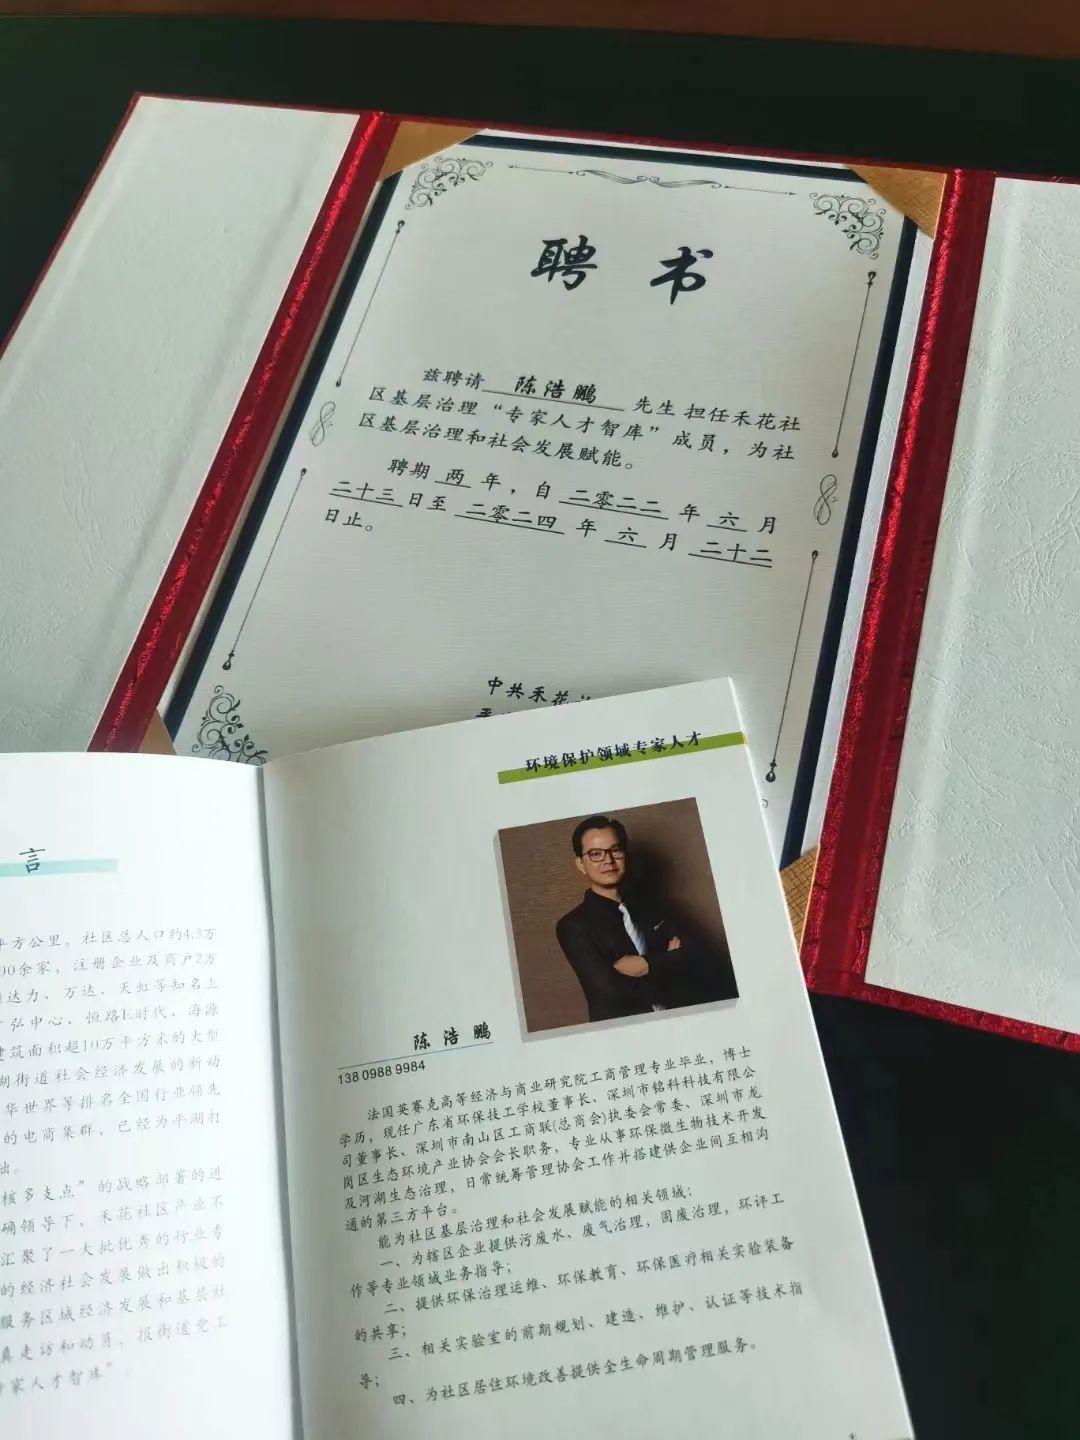 聘书
兹聘请 陈浩鹏 先生 担任禾花社
区基层治理“专家人才智库”成员，为社
区基层治理和社会发展赋能。
聘期 两 年，自 二零二二 年 六 月
二十三 日至 二零二四 年 六 月 二十二
日止。
中共禾花
言
平方公里，社区总人口约4.3万
00余家，注册企业及商户2万
达力、万达、天虹等知名上
弘中心、恒路E时代、海源
建筑面积超10万平方米的大型
湖街道社会经济发展的新动
华世界等排名全国行业领先
的电商集群、已经为平湖打
出。
核多支点”的战略部署的进
确领导下，禾花社区产业不
汇聚了一大批优秀的行业专
的经济社会发展做出积极的
服务区域经济发展和基层社
真走访和动员，报街道党工
家人才智库”。
环境保护领域专家人才
陈浩鹏
138 0988 9984
法国英赛克高等经济与商业研究院工商管理专业毕业，博士
学历，现任广东省环保技工学校董事长、深圳市铭科科技有限公
司董事长、深圳市南山区工商联(总商会)执委会常委、深圳市龙
岗区生态环境产业协会会长职务，专业从事环保微生物技术开发
及河湖生态治理，日常统筹管理协会工作并搭建供企业间互相沟
通的第三方平台。
能为社区基层治理和社会发展赋能的相关领域：
一、为辖区企业提供污废水、废气治理，固废治理，环评工
作等专业领域业务指导；
二、提供环保治理运维、环保教育、环保医疗相关实验装备
的共享；
三、相关实验室的前期规划、建造、维护、认证等技术指
导；
四、为社区居住环境改善提供全生命周期管理服务。